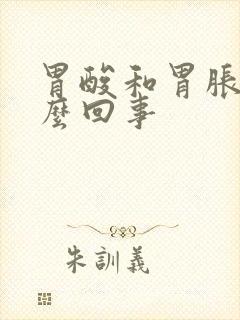 胃酸和胃脹
麼回事
朱訓義